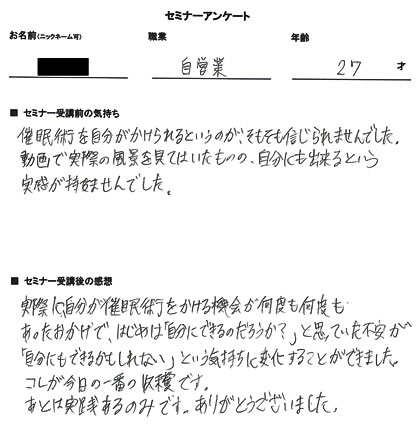 セミナーアンケート
お名前(ニックネーム可) 職業 年齢
自営業 27 才
■ セミナー受講前の気持ち
催眠術を自分がかけられるというのが、そもそも信じられませんでした。
動画で実際の風景を見てはいたものの、自分にも出来るという
実感が持てませんでした。
■ セミナー受講後の感想
実際に自分が催眠術をかける機会が何度も何度も
あったおかげで、はじめは「自分にできるのだろうか?」と思っていた不安が
「自分にもできるかもしれない」という気持ちに変化することができました。
コレが今日の一番の収穫です。
あとは実践あるのみです。ありがとうございました。